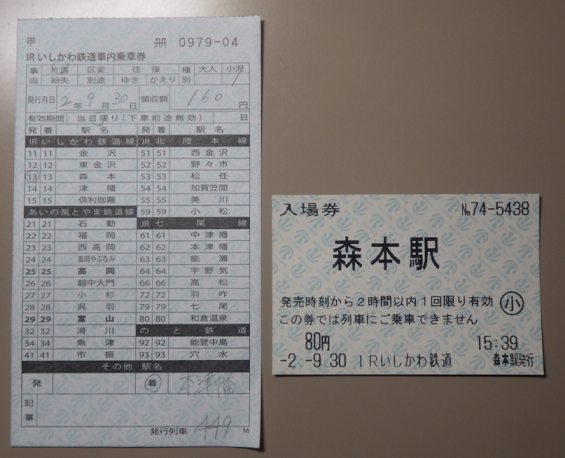 甲 冊 0979-04
IRいしかわ鉄道車内乗車券
事由 片道 区変 往復 種別 大人 小児
紛失 別途 ゆき かえり 1
発行月日 2年9月30日 領収額 160円
有効期間 当日限り(下車前途無効) 日
発 着 駅名 発 着 駅名
IRいしかわ鉄道線 JR北陸本線
11 11 金沢 51 51 西金沢
12 12 東金沢 52 52 野々市
13 13 森本 53 53 松任
14 14 津幡 54 54 加賀笠間
15 15 倶利伽羅 55 55 美川
あいの風とやま鉄道線 59 59 小松
21 21 石動 JR七尾線
22 22 福岡 61 61 中津幡
23 23 西高岡 62 62 本津幡
24 24 高岡やぶなみ 63 63 能瀬
25 25 高岡 64 64 宇野気
26 26 越中大門 66 66 高松
27 27 小杉 72 72 羽咋
28 28 呉羽 79 79 七尾
29 29 富山 80 80 和倉温泉
32 32 滑川 のと鉄道
34 34 魚津 92 92 能登中島
41 41 市振 93 93 穴水
その他駅名
発 着 本津幡
記事
発行列車 449 M
入場券 №74-5438
森本駅
発売時刻から2時間以内1回限り有効 小
この券では列車にご乗車できません
80円 15:39
-2.-9.30 IRいしかわ鉄道 森本駅発行